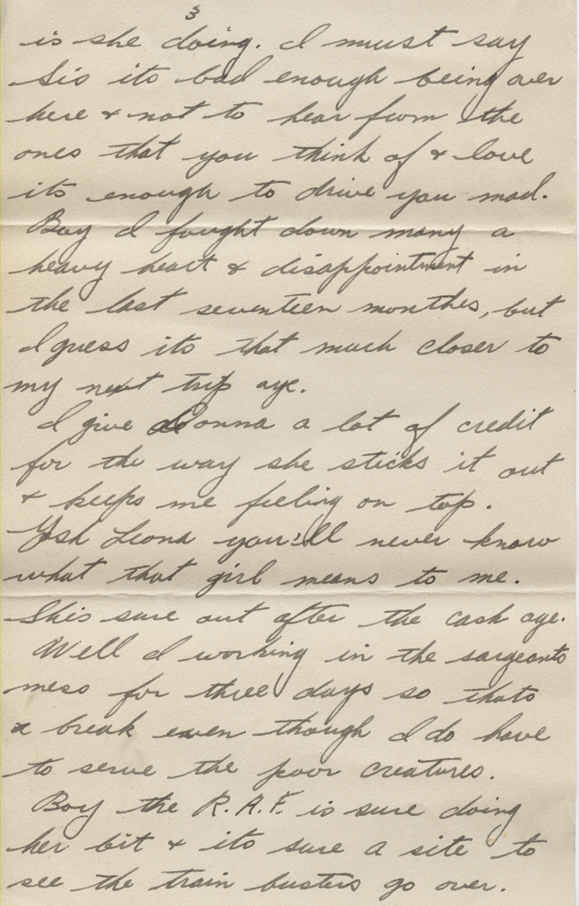 3
is she doing. I must say
Sis its bad enough being over
here & not to hear from the
ones that you think of & love
its enough to drive you mad.
Boy I fought down many a
heavy heart & disappointment in
the last seventeen monthes, but
I guess its that much closer to
my next trip aye.
I give Donna a lot of credit
for the way she sticks it out
& keeps me feeling on top.
Gosh Leona you'll never know
what that girl means to me.
Shis sure out after the cash aye.
Well I working in the sargeants
mess for three days so thats
a break even though I do have
to serve the poor creatures.
Boy the R.A.F. is sure doing
her bit & its sure a site to
see the train busters go over.